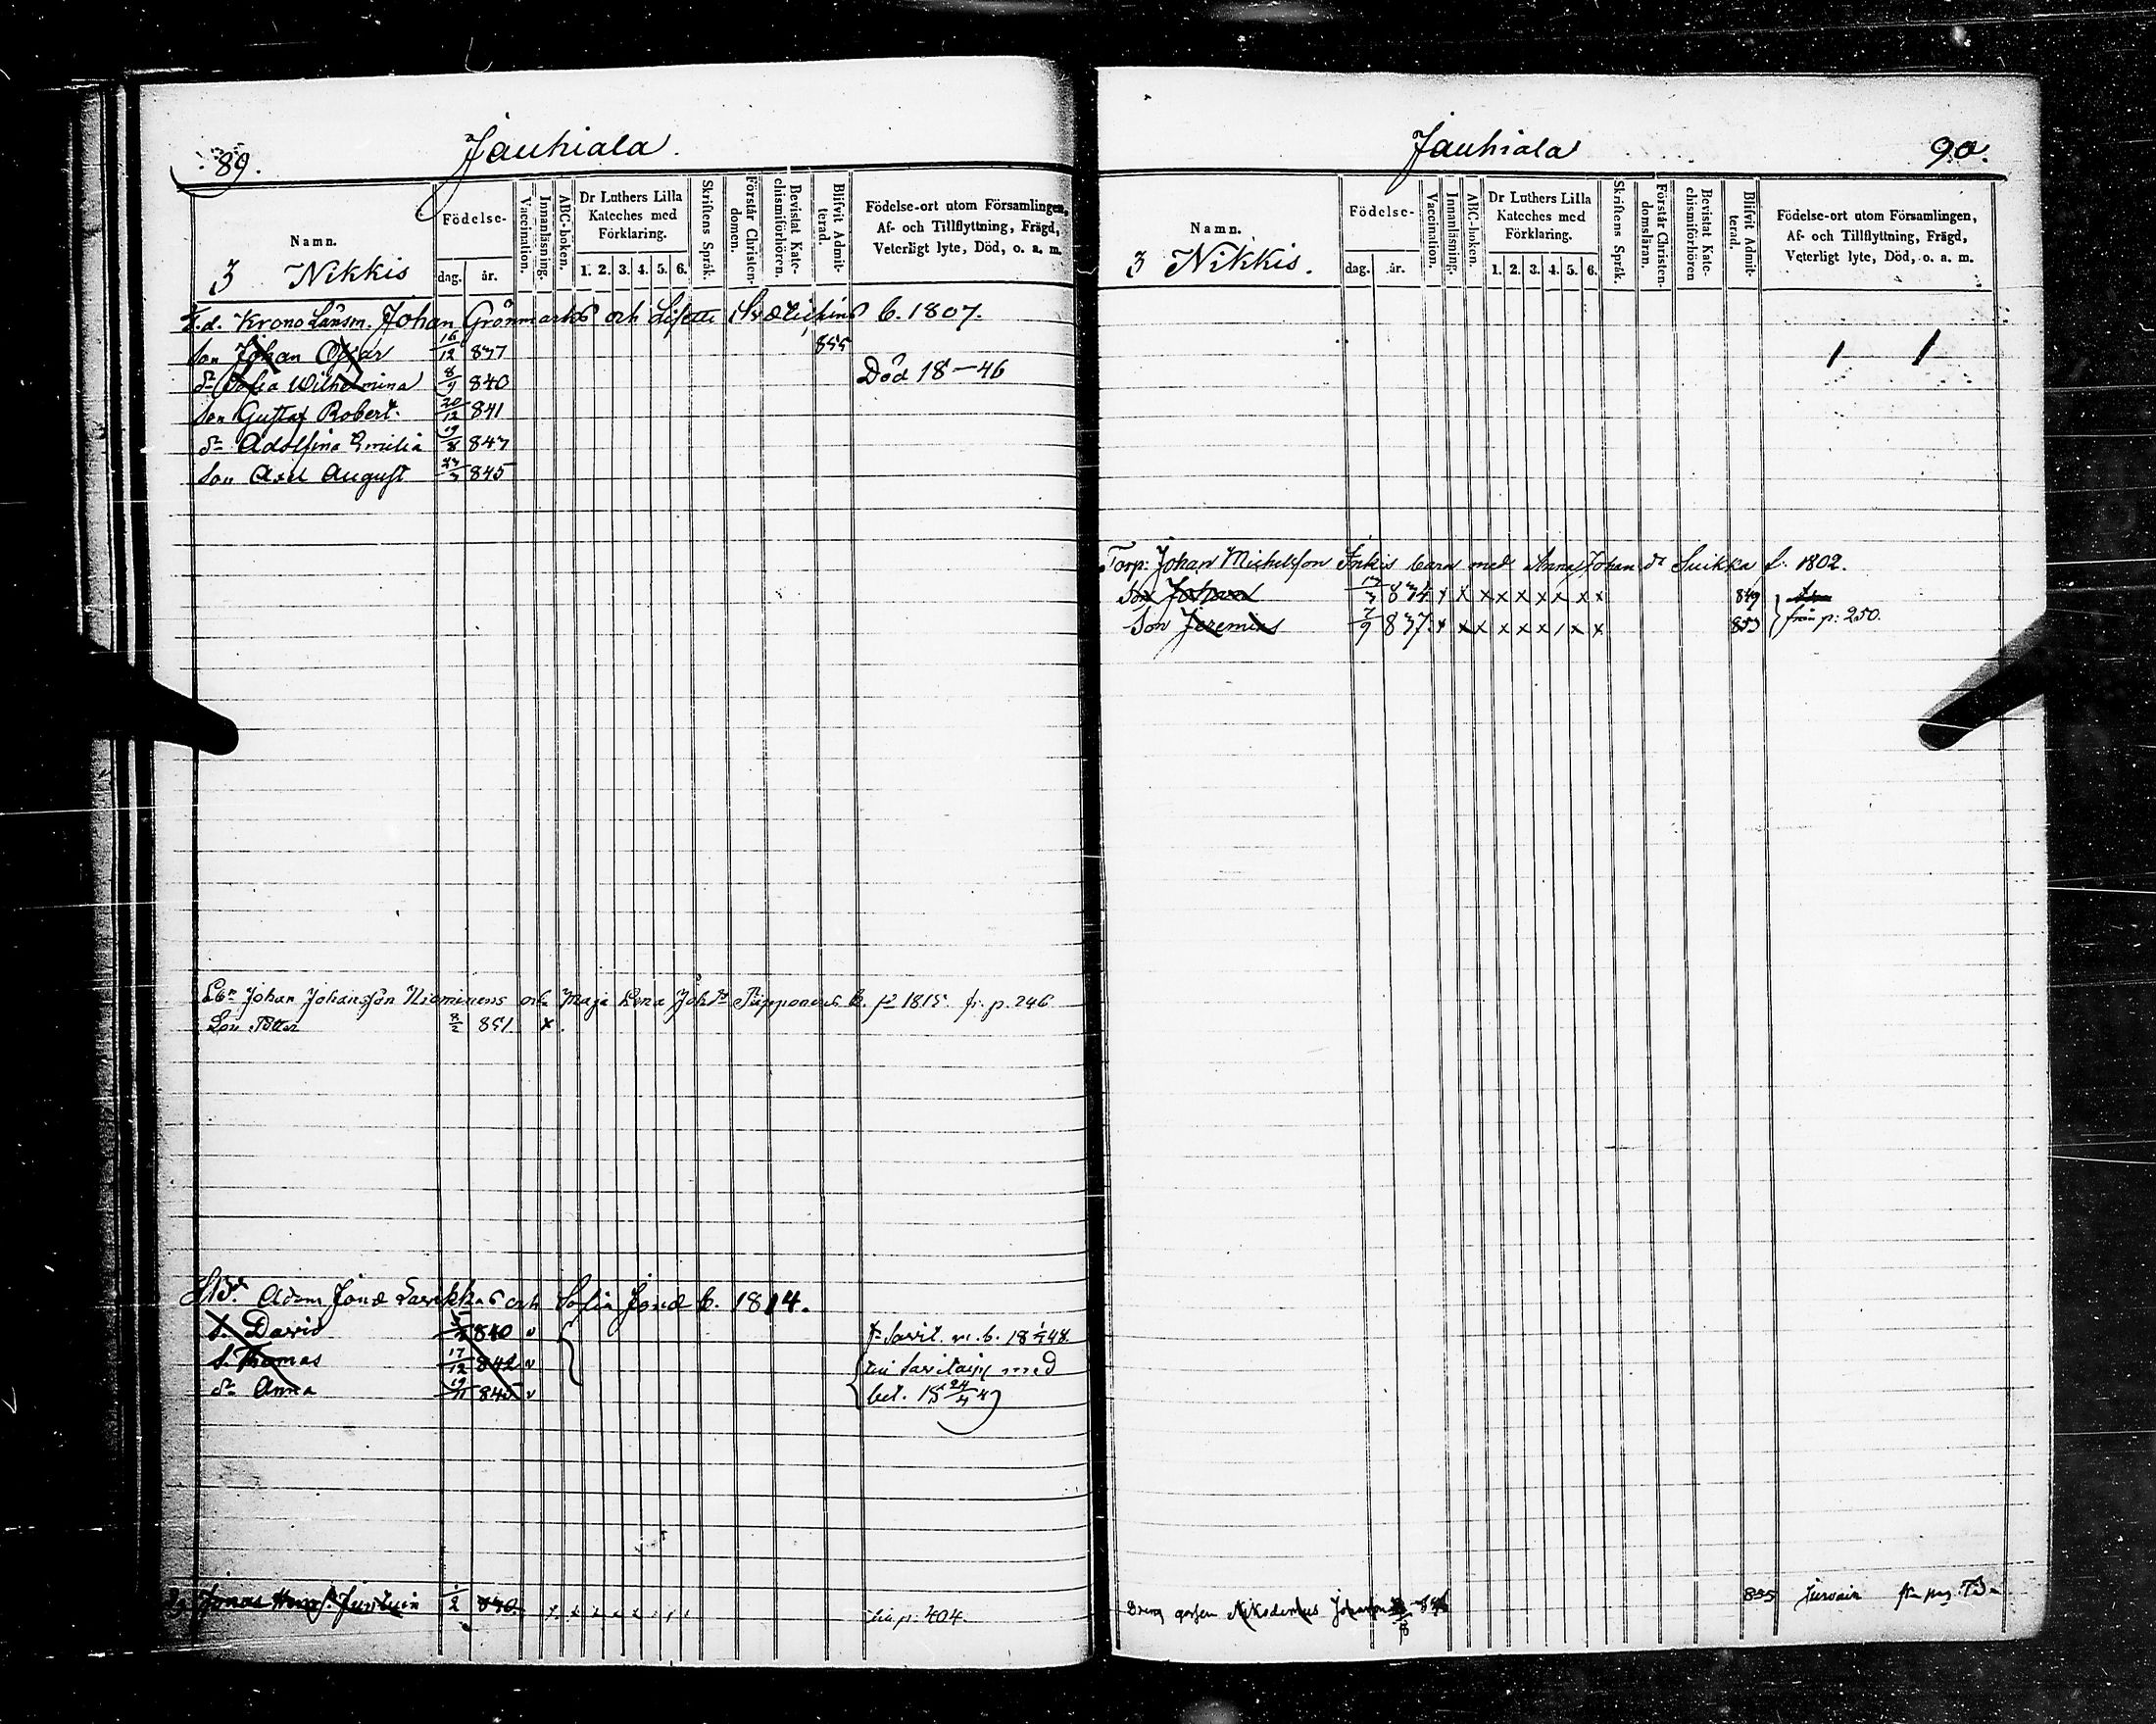 89.
Jauhiala.
Namn.
Födelse-
dag.
år.
Vaccination.
Innanläsning.
ABC-boken.
Dr Luthers Lilla
Kateches med
Förklaring.
1. 2. 3. 4. 5. 6.
Skriftens Språk.
Förstår Christen-
domen.
Bevistat Kate-
chismiförhören.
Blifvit Admit-
terad.
Födelse-ort utom Församlingen,
Af- och Tillflyttning, Frägd,
Veterligt lyte, Död, o. a. m.
3 Nikkis
F.d. Krono Länsm. Johan Grönmarks och Lisette b. 1807.
Son Johan Oskar 16/12 837 855
dr Sofia Wilhelmina 8/9 840 Död 18—46
Son Gustaf Robert. 20/12 841
dr Adolfina Emilia 19/8 843
Son Axel August 23/3 845
Johan Johansson Nieminens och Maja Lena Joh. dr b. 1815. fr. p. 246
Son Petter 8/2 851 x
Adam Jonæ och Sofia Jonæ b. 1814.
s. David 840 v
s. Thomas 17/12 842 v
dr Anna 19/11 845 v
till med
bet. 18 24/4
Jonas 1/2 840. till p. 404.
Jauhiala
90.
Namn.
Födelse-
dag.
år.
Vaccination.
Innanläsning.
ABC-boken.
Dr Luthers Lilla
Kateches med
Förklaring.
1. 2. 3. 4. 5. 6.
Skriftens Språk.
Förstår Christen-
domsläran.
Bevistat Kate-
chismiförhören
Blifvit Admit-
terad.
Födelse-ort utom Församlingen,
Af- och Tillflyttning, Frägd,
Veterligt lyte, Död, o. a. m.
3 Nikkis.
Torp: Johan Michelsson Inkis barn med Anna Johan dr Suikka f. 1802.
Son Johan 834 x x x x x x x x x 849
Son Jeremias 7/9 837 x x x x x x / x x 853 från p: 250.
Dreng gossen Nikodemus 855